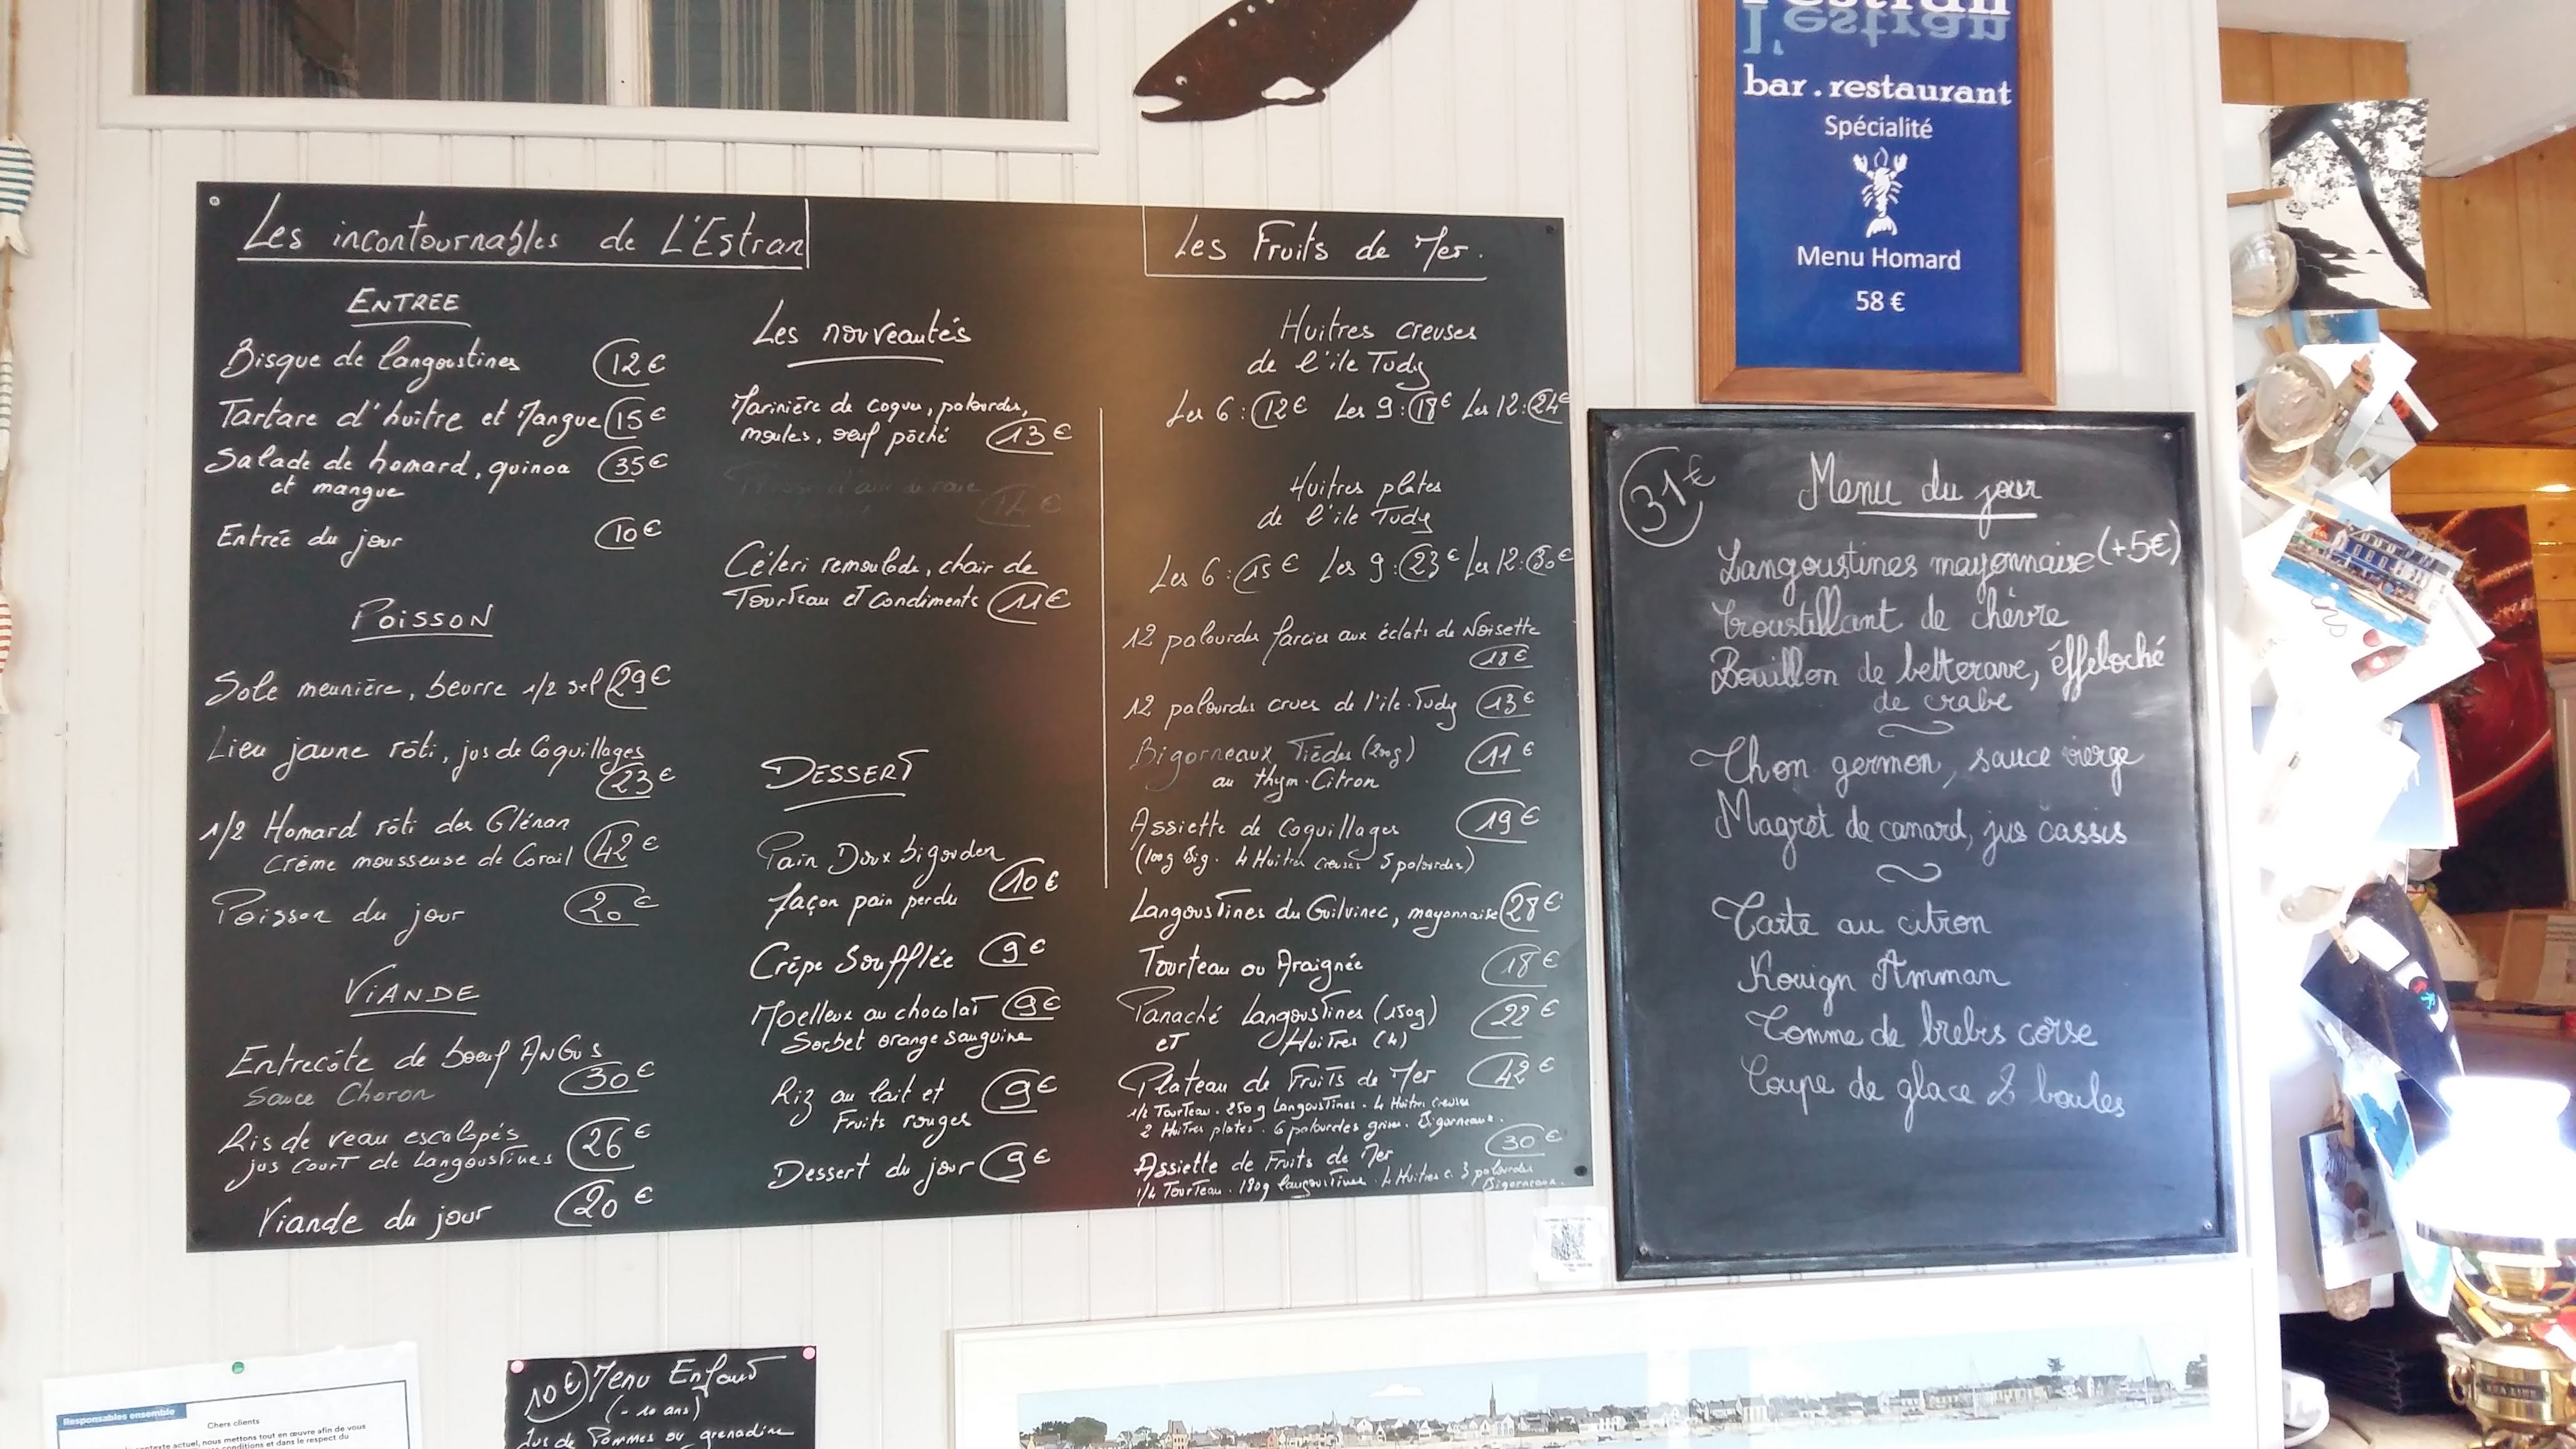 Les incontournables de L'Estran
ENTREE
Bisque de langoustines 12€
Tartare d'huître et Mangue 15€
Salade de homard, quinoa 35€
et mangue
Entrée du jour 10€
POISSON
Sole meunière, beurre 1/2 sel 29€
Lieu jaune rôti, jus de Coquillages
23€
1/2 Homard rôti des Glénan
Crème mousseuse de Corail 42€
Poisson du jour 20€
VIANDE
Entrecôte de boeuf ANGUS
Sauce Choron 30€
Ris de veau escalopés 26€
jus court de langoustines
Viande du jour 20€
Les nouveautés
Marinière de coques, palourdes,
moules, oeuf pôché 13€
14€
Céleri remoulade, chair de
Tourteau et condiments 11€
DESSERT
Pain Doux bigouden
façon pain perdu 10€
Crêpe Soufflée 9€
Moelleux au chocolat 9€
Sorbet orange sanguine
Riz au lait et 9€
Fruits rouges
Dessert du jour 9€
Les Fruits de Mer.
Huitres creuses
de l'ile Tudy
Les 6 : 12€ Les 9 : 18€ Les 12 : 24€
Huitres plates
de l'ile Tudy
Les 6 : 15€ Les 9 : 23€ Les 12 : 30€
12 palourdes farcies aux éclats de Noisette
18€
12 palourdes crues de l'ile-Tudy 13€
Bigorneaux Tièdes (200g) 11€
au thym-Citron
Assiette de Coquillages 19€
(100g Big. 4 Huitres creuses 5 palourdes)
Langoustines du Guilvinec, mayonnaise 28€
Tourteau ou Araignée 18€
Panaché Langoustines (150g) 22€
et Huitres (4)
Plateau de Fruits de Mer 42€
1/2 Tourteau . 250g Langoustines . 4 Huitres creuses
2 Huitres plates . 6 palourdes grises . Bigorneaux.
30€
Assiette de Fruits de Mer
1/4 Tourteau . 180g langoustines . 4 Huitres c. 3 palourdes
Bigorneaux.
l'estran
bar.restaurant
Spécialité
Menu Homard
58 €
31€ Menu du jour
Langoustines mayonnaise (+5€)
Croustillant de chèvre
Bouillon de betterave, éffeloché
de crabe
Thon germon, sauce vierge
Magret de canard, jus cassis
Tarte au citron
Kouign Amman
Tomme de brebis corse
Coupe de glace 2 boules
10€ Menu Enfant
(- 10 ans)
Jus de Pommes ou grenadine
Responsables ensemble
Chers clients
contexte actuel, nous mettons tout en œuvre afin de vous
conditions et dans le respect du